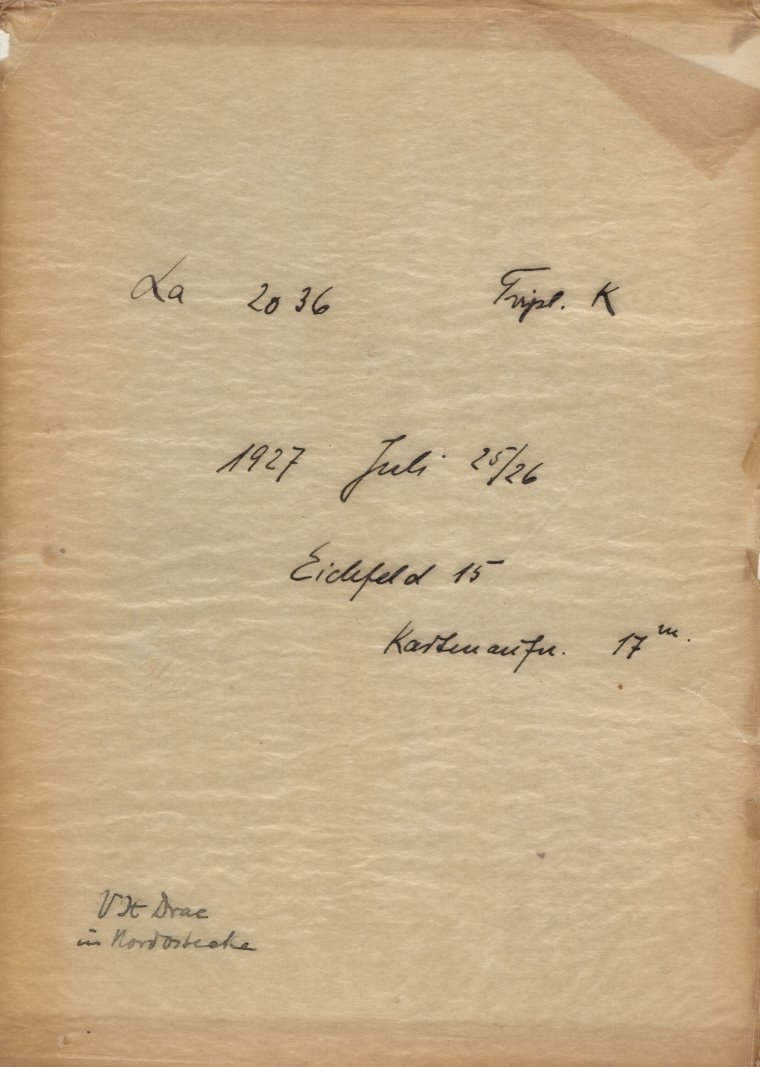 La 2036 Tripl. K
1927 Juli 25/26
Eichfeld 15
Kartenaufn. 17 m.
VX Drac
in Nordostecke